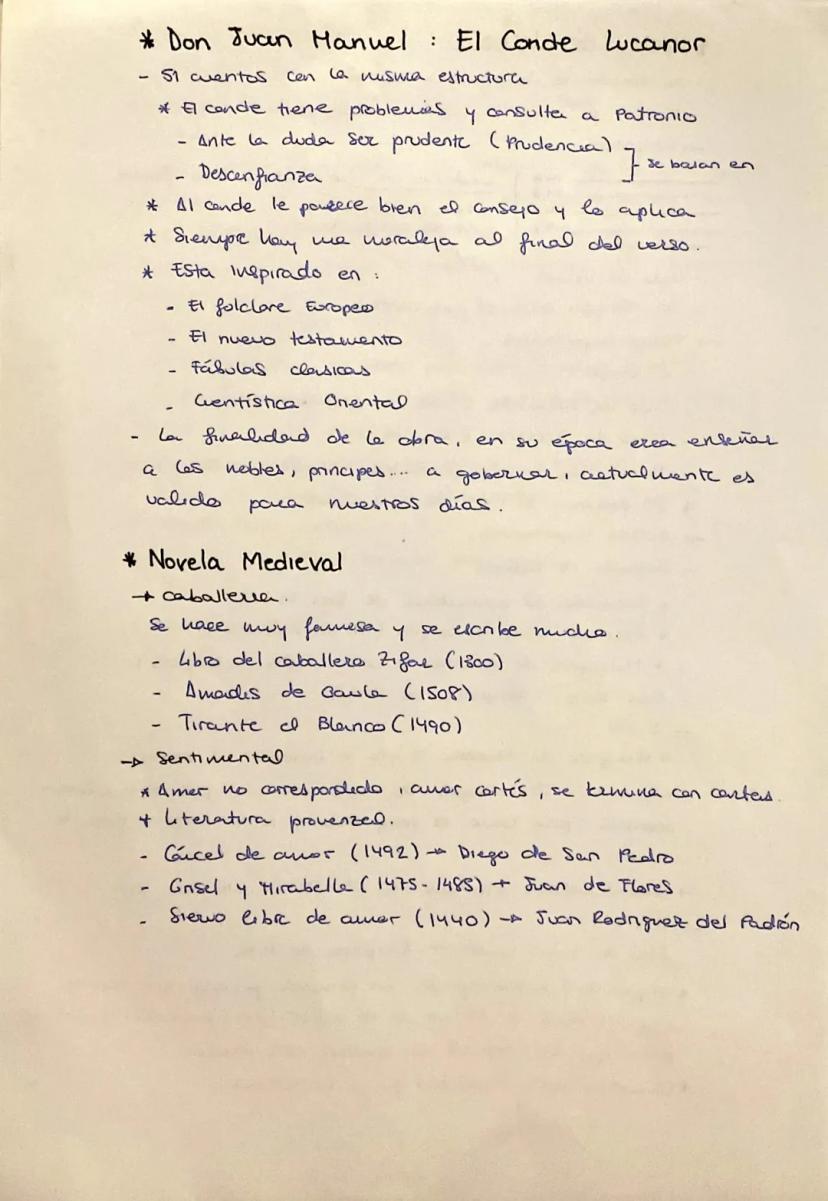 * Don Juan Manuel : El Conde Lucanor
- 51 cuentos con la misma estructura
* El conde tiene problemas y consulta a Patronio
- Ante la duda ser prudente (Prudencia)
- Desconfianza
] se basan en
* Al conde le parece bien el consejo y lo aplica
* Siempre hay una moraleja al final del verso.
* Esta inspirado en :
- El folclore Europeo
- El nuevo testamento
- Fábulas clasicas
- Cuentística Oriental
- La finalidad de la obra, en su época era enseñar
a los nobles, principes... a gobernar, actualmente es
valido para nuestros días.
* Novela Medieval
→ caballeria.
Se hace muy famosa y se escribe mucho.
- Libro del caballero Zifar (1300)
- Amadis de Gaula (1508)
- Tirante el Blanco (1490)
→ Sentimental
* Amor no correspondido, amor cortés, se termina con cartas.
+ Literatura provenzal.
- Cárcel de amor (1492) → Diego de San Pedro
- Grisel y Mirabella (1475-1485) → Juan de Flores
- Siervo libre de amor (1440) → Juan Rodriguez del Padrón